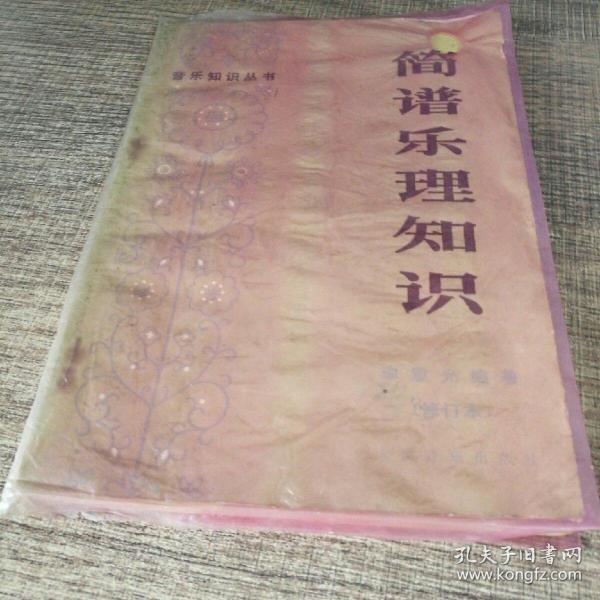 音乐知识丛书
简谱乐理知识
编著
修订本
出版社
孔夫子旧书网
www.kongfz.com